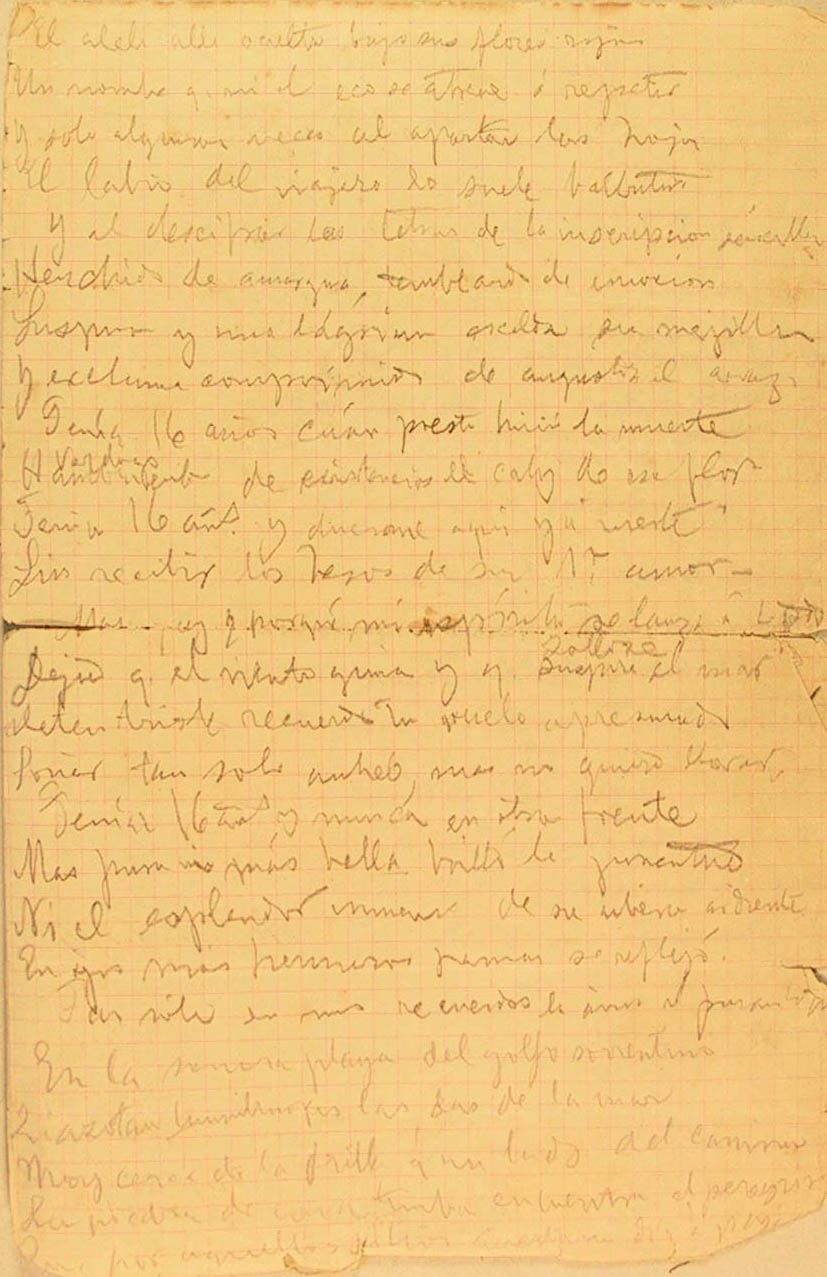 El alelí allí oculta bajo sus flores rojas
Un nombre q. ni el eco se atreve á repetir
Y solo algunas veces al apartar las hojas
El labio del viajero lo suele balbutir
Y al descifrar las letras de la inscripcion sencilla
Henchido de amargura, temblando de emocion
Suspira y una lágrima escalda su mejilla
Y exclama comprimido de angustia el
Tenía 16 años cuán presto hirió la muerte
de existencia el caliz de esa flor
Tenía 16 añs. y duerme aquí
Sin recibir los besos de su 1r. amor
Mas ay y porqué mi espíritu se lanza á
Dejad q. el viento gima y q. suspire solloze el mar
Deten triste recuerdo tu vuelo apresurado
Soñar tan solo anhelo, mas no quiero llorar,
Tenía 16 añs y nunca en otra frente
Mas pura más bella brilló la juventud
Ni el esplendor inmenso de su ribera ardiente
En ojos más hermosos jamas se reflejó.
Tan solo en mis recuerdos
En la sonora playa del golfo sorrentino
las olas de la mar
Muy cerca de la orilla á un lado del camino
La piedra de una tumba encuentra el peregrino
por aquellos sitios